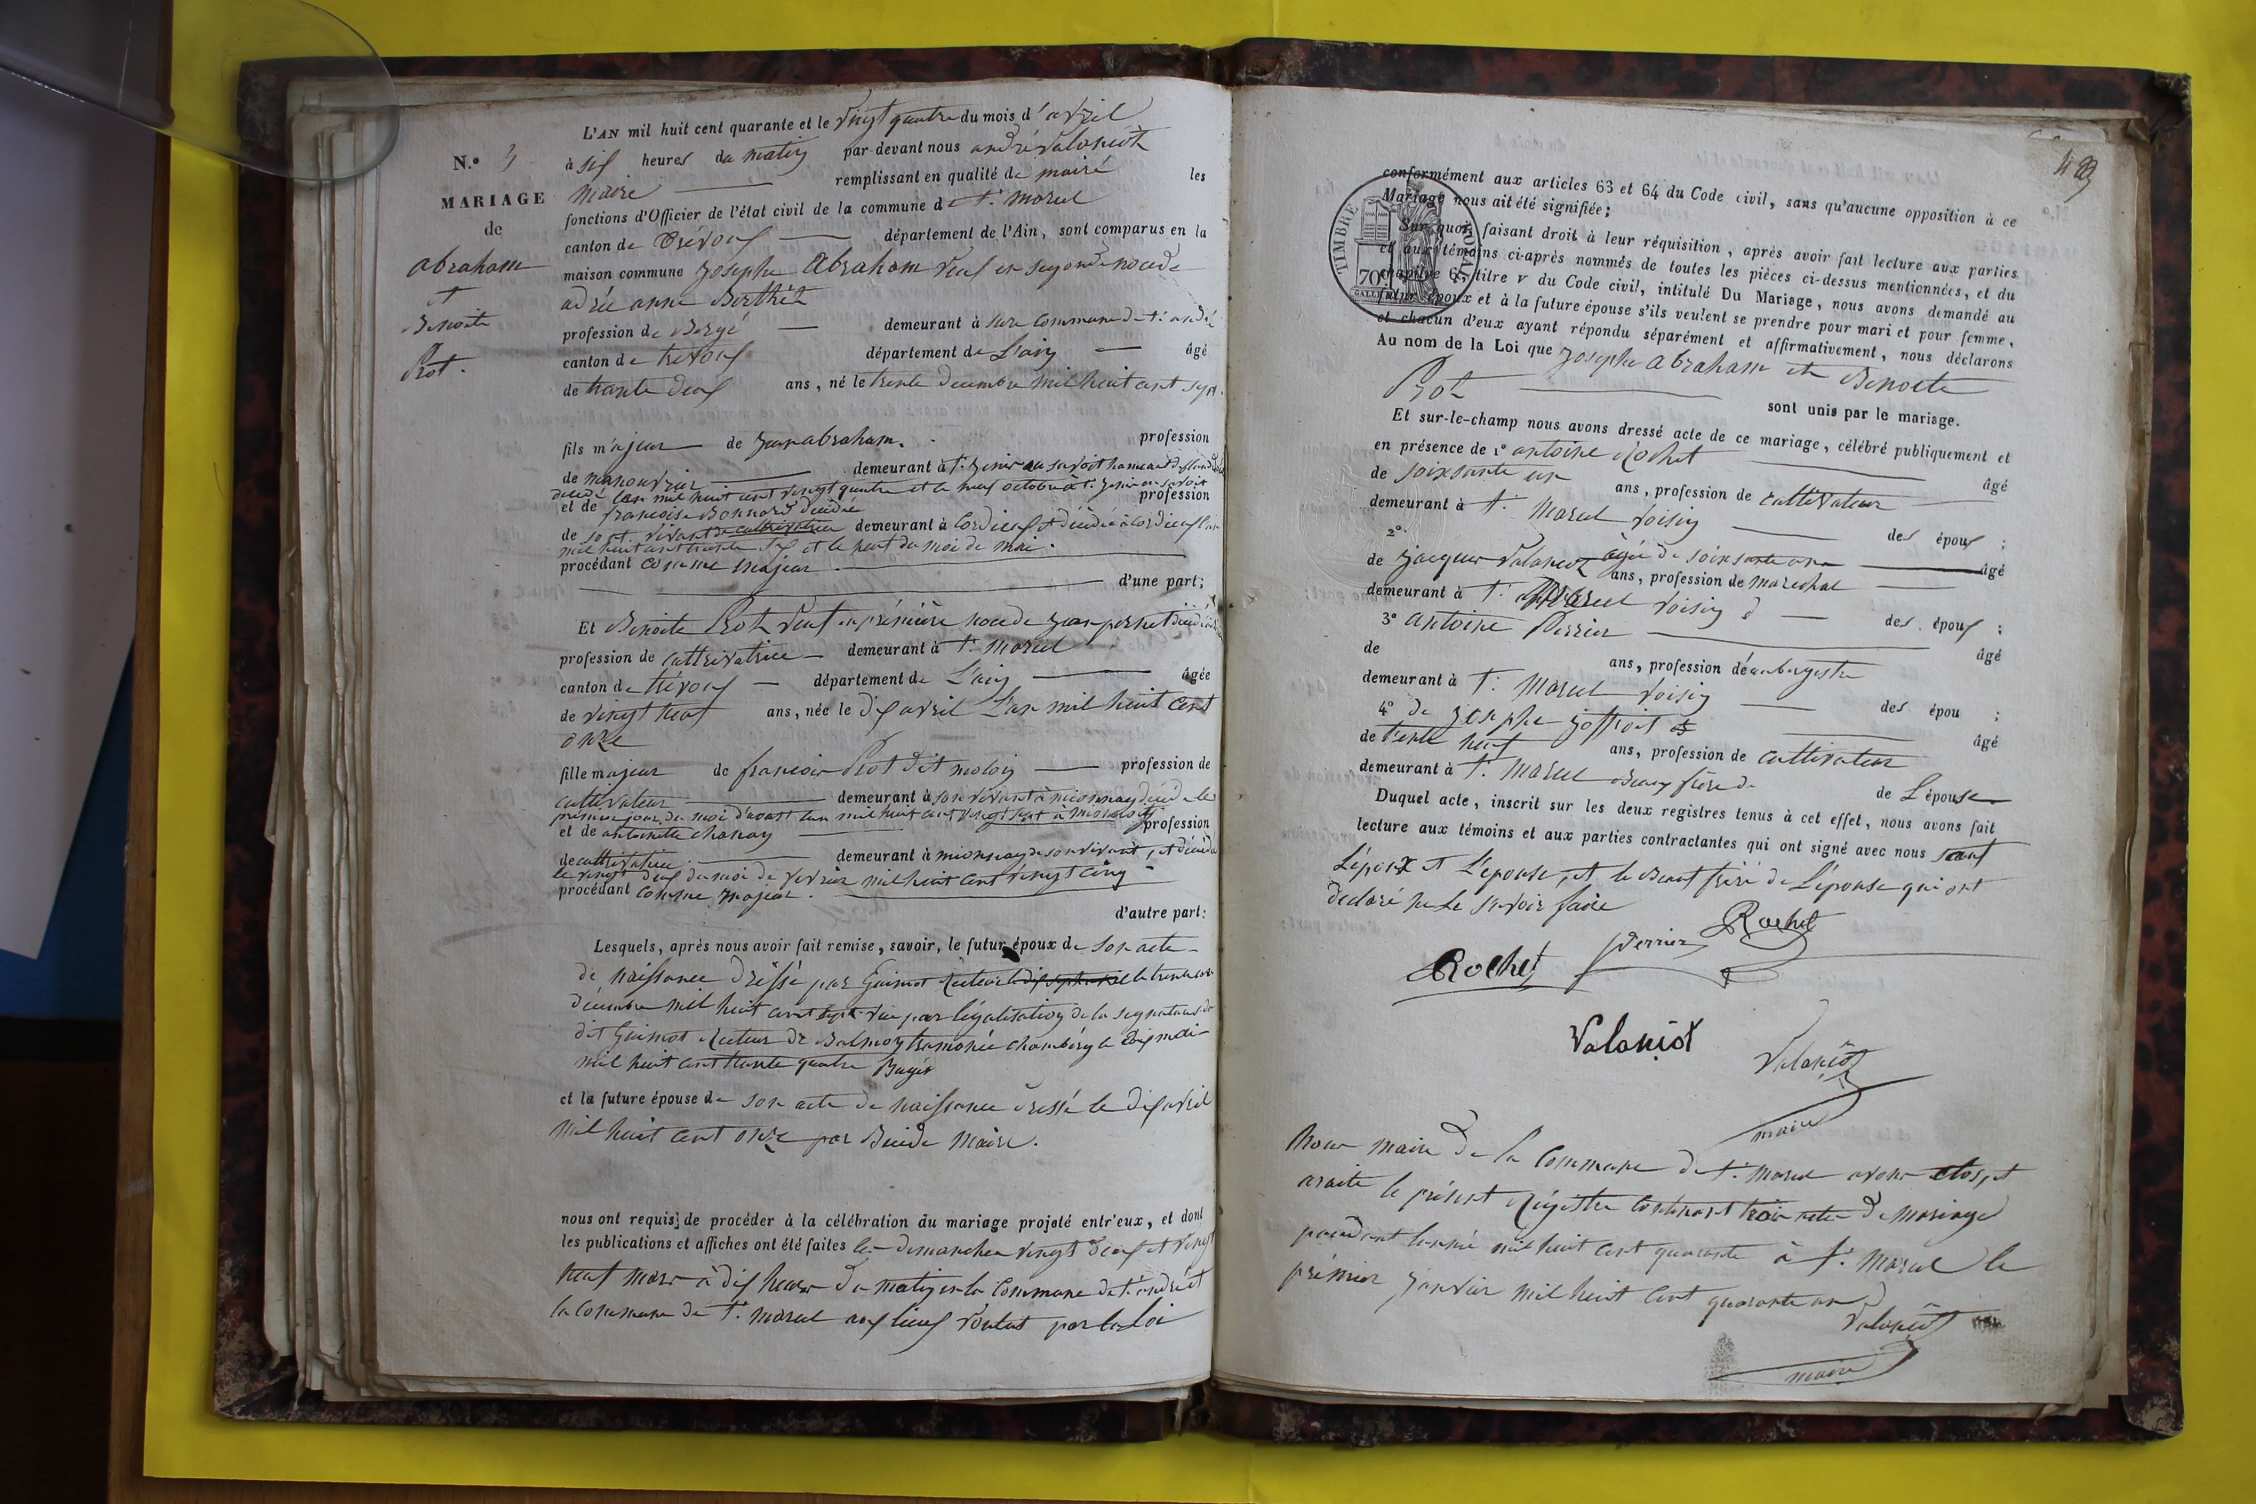 L'AN mil huit cent quarante et le vingt quatre du mois d'avril
N.o
à six heures du matin par-devant nous andré Valansiot
MARIAGE
maire remplissant en qualité de mairé les
fonctions d'Officier de l'état civil de la commune de st. marcel
de
canton de trévoux département de l'Ain, sont comparus en la
abraham
maison commune josephe abraham veuf en segonde nocede
et
adrée anne Berthét
Benoite
profession de Bergé demeurant à sure commune de st. andré
canton de trévoux département de L'ain âgé
Prot.
de trante deux ans, né le trente decembre mil huit cent sept.
fils majeur de jean abraham. profession
de manouvrier demeurant à st. jenir au savoit hameau
décédé l'an mil huit cent vingt quatre et le neuf octobre à st. jenir en savoit
et de francoise Bonnard décédée profession
de son vivant de cultivatrice demeurant à Cordieux et décédée à cordieux l'an
mil huit cent trante six et le huit du moi de mai.
procédant comme majeur
d'une part;
Et Benoite Prot veuf en prémière nocede jean pernet décédé
profession de cultrivatrice demeurant à st. marcel
canton de trévoux département de L'ain âgée
de vingt neuf ans, née le dix avril L'an mil huit cent
onze
fille majeur de francois Prot dit moloin profession de
cultivateur demeurant à son vivant à mionnay décédé le
premier jour du moi d'avout l'an mil huit cent vingt sept à mionnay
et de antoinette chanay profession
de cultivatrice demeurant à mionnay de son vivant, et décédée
le vingt deux du moi de fevrier mil huit cent vingt cinq
procédant comme majeur.
d'autre part:
Lesquels, après nous avoir fait remise, savoir, le futur époux de son acte
de naissance dréssé par Guimot Recteur le trente
décembre mil huit cent sept vue par légalisation de la segnature de
dit Guimot Recteur de Balmoz tramonée chambéry le dix mai
mil huit cent trante quatre
et la future épouse de son acte de naissance dressé le dix avril
mil huit cent onze par Maire.
nous ont requis de procéder à la célébration du mariage projeté entr'eux, et dont
les publications et affiches ont été faites les dimanches vingt deux et vingt
neuf mars à dix heures du matin en la commune de st. andré et
la commune de st. marcel aux lieux voulus par la Loi
conformément aux articles 63 et 64 du Code civil, sans qu'aucune opposition à ce
Mariage nous ait été signifiée;
Sur quoi faisant droit à leur réquisition, après avoir fait lecture aux parties
et aux témoins ci-après nommés de toutes les pièces ci-dessus mentionnées, et du
chapitre 6, titre V du Code civil, intitulé Du Mariage, nous avons demandé au
futur époux et à la future épouse s'ils veulent se prendre pour mari et pour femme,
et chacun d'eux ayant répondu séparément et affirmativement, nous déclarons
TIMBRE ROYAL
70c
Au nom de la Loi que josephe abraham et Benoite
Prot sont unis par le mariage.
Et sur-le-champ nous avons dressé acte de ce mariage, célébré publiquement et
en présence de 1o antoine Rochet âgé
de soixsante un ans, profession de cultivateur
demeurant à st. Marcel voisin des époux;
2o.
de jacques Valansiot agée de soixsante un âgé
ans, profession de marechal
demeurant à st. Marcel voisin des époux;
3o antoine Perrier âgé
de ans, profession de aubergiste
demeurant à st. Marcel voisin des épou;
4o de josephe joffront âgé
de trente neuf ans, profession de cultivateur
demeurant à st. marcel Beaux frère de de L'épouse
Duquel acte, inscrit sur les deux registres tenus à cet effet, nous avons fait
lecture aux témoins et aux parties contractantes qui ont signé avec nous
L'époux et L'épouse, et le Beaut fréré de L'épouse qui ont
declaré ne le savoir faire
Rochet
Rochet Perrier
Valansiot
Valansiot
maire
Nous maire de la Commune de st. Marcel avons clos et
araite le présent Régistre contenant trois actes de mariage
paendant lannée mil huit cent quarante à st. Marcel le
prémier janvier mil huit cent quarante un
Valansiot
maire